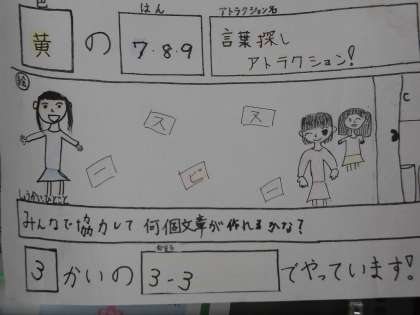 色
黄 の
はん
7・8・9
アトラクション名
言葉探し
アトラクション!
絵
ス
ス
ー
ビ
ー
C
しょうかいひとこと
みんなで協力して 何個文章が作れるかな?
3 かいの
3-3
でやっています!